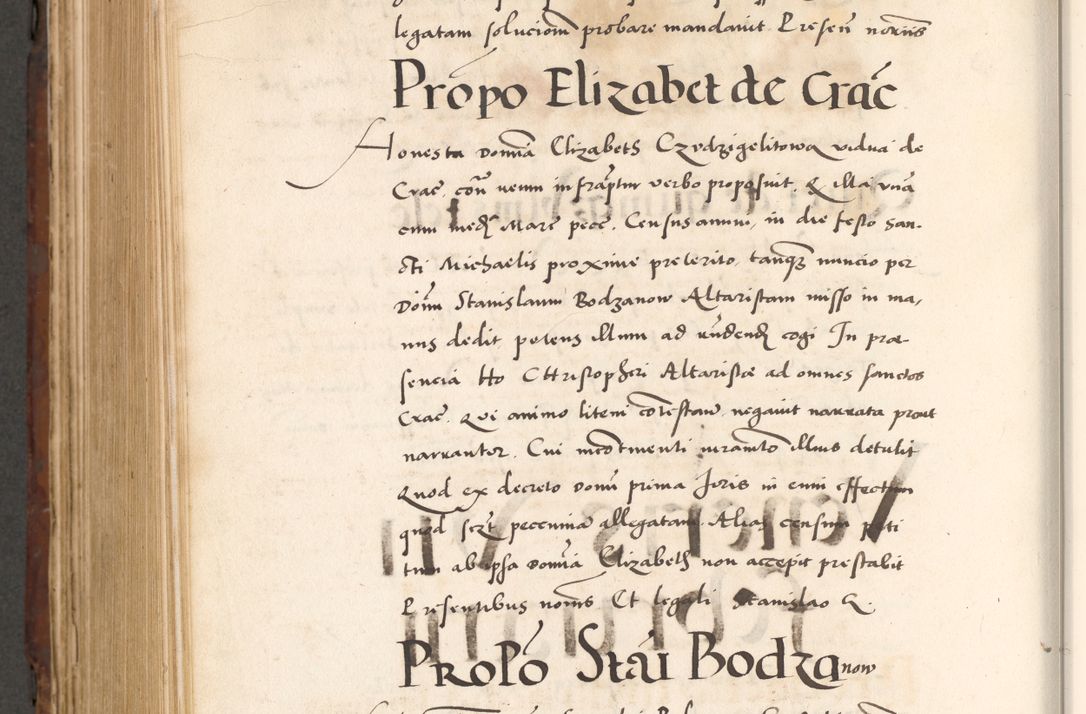 legatam soluciom̄ probare mandauit Presen̄ notariis
Propō Elizabet de Crac̄
Honesta domīa Elizabeth Czvdzigelitowa vidua de
Crac̄. con̄ uenm infrāptur verbo proposuit. Q illa vnā
cum med̄ Marc̄ pecc̄. Census annui, in die festo San-
cti Michaelis proxime preterito, tanq̄ nuncio per
Doīm Stanislaum Bodzanow Altaristam misso in ma,
nus dedit petens illum ad rn̄dend̄ cogi In præ-
sencia Ho Christopheri Altaristæ ad omnes sanctos
Crac̄. Qvi animo liteni cōtestan̄. negauit narrata prout
narrantvr. Cui incōtinenti iuramto illius detulit
Quod ex decreto Domī prima Iuris in eum effectum
quod scz̄t peccunia allegatam. Alias censum peti
tum ab ipsa Domīa Elizabeth non accepit prestabit
Presentibus nom̄s Et legali Stanislao &.
Propō Staī Bodzanow